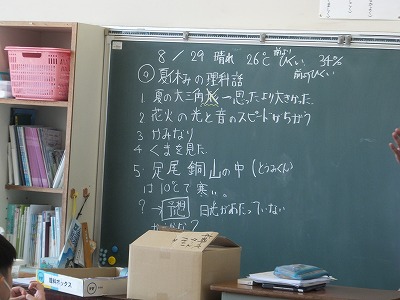 8/29 晴れ 26℃ 前よりひくい 34% 前よりひくい
夏休みの理科話
1 夏の大三角形→思ったより大きかった。
2 花火の光と音のスピードがちがう
3 かみなり
4 くまを見た。
5 足尾銅山の中(とうみくん)
は10℃で寒い。
?→予想 日光があたっていない
からかな?
理科ボックス